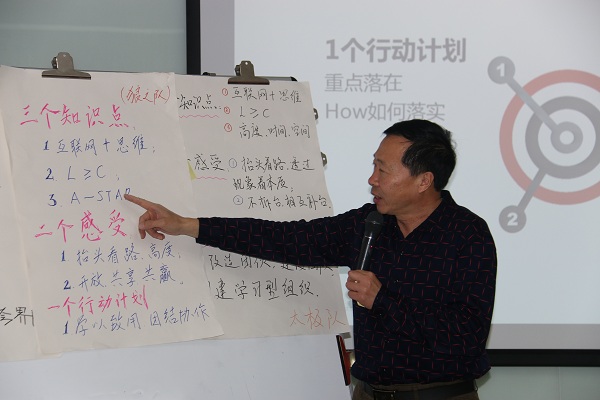 三个知识点
1 互联网+思维;
2. L≥C;
3. A-STAR
二个感受
1 抬头看路、高度、
2 开放、共享、共赢、
一个行动计划
1 学以致用 团结协作
知识点:
① 互联网+思维
② L≥C
③ 高度、时间、空间
感受
① 抬头看路、透过
现象看本质、
② 不拆台、相互补台、
建学习型组织、
太极队
1个行动计划
重点落在
How如何落实
1
2